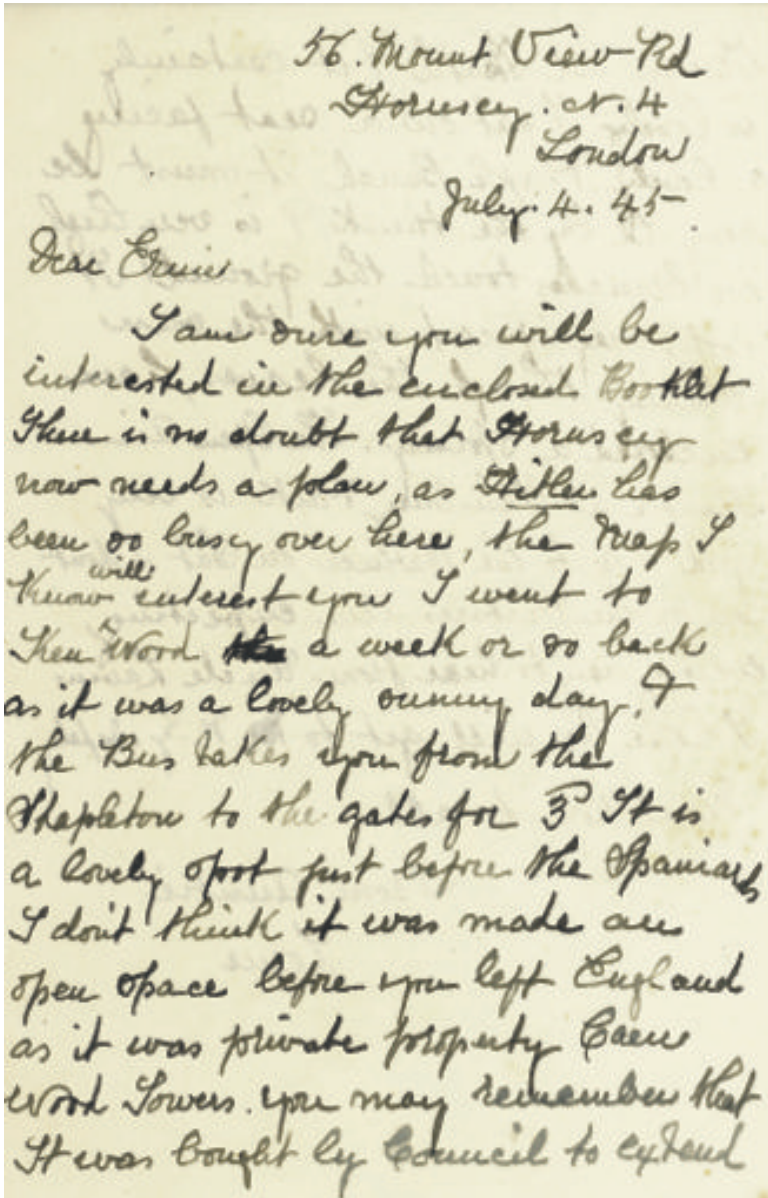 56. Mount View Rd
Hornsey. N. 4
London
July. 4. 45
Dear Ernie
I am sure you will be
interested in the enclosed Booklet
There is no doubt that Hornsey
now needs a plan, as Hitler has
been so busy over here, the map I
know will interest you I went to
Ken Wood a week or so back
as it was a lovely sunny day, &
the Bus takes you from the
Stapleton to the gates for 3D It is
a lovely spot just before the Spaniards
I don't think it was made an
open space before you left England
as it was private property Caen
Wood Towers. you may remember that
It was bought by Council to extend